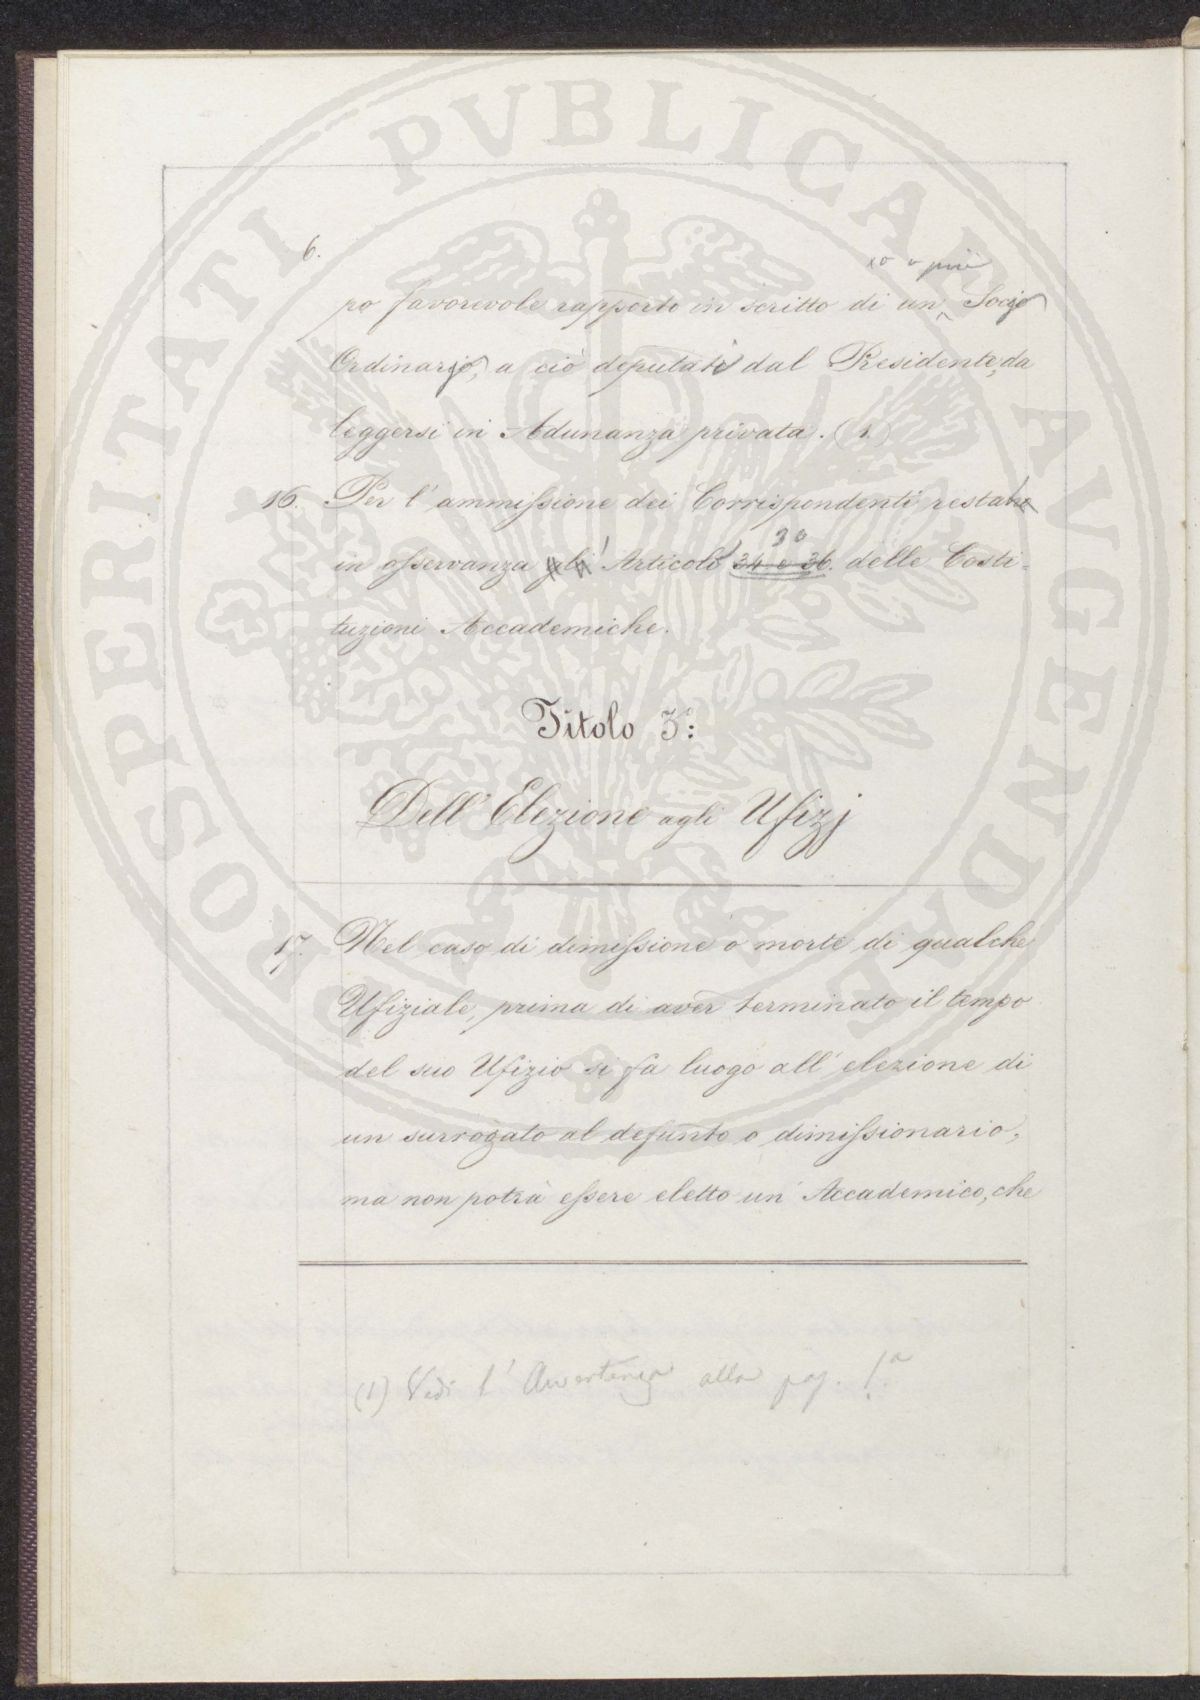 PROSPERITATI PVBLICAE AVGENDAE
6.
o più
po favorevole rapporto in iscritto di un Socjo
Ordinarjo, a ciò deputati dal Presidente, da
leggersi in Adunanza privata. (1)
16. Per l'ammissione dei Corrispondenti resta
30
in osservanza gli Articoli 34 e 36. delle Costi=
tuzioni Accademiche.
Titolo 3º:
Dell'Elezione agli Ufizj
17. Nel caso di dimissione o morte di qualche
Ufiziale, prima di aver terminato il tempo
del suo Ufizio si fa luogo all'elezione di
un surrogato al defunto o dimissionario;
ma non potrà essere eletto un Accademico, che
(1) Vedi l'Avvertenza alla pag. 1.ª